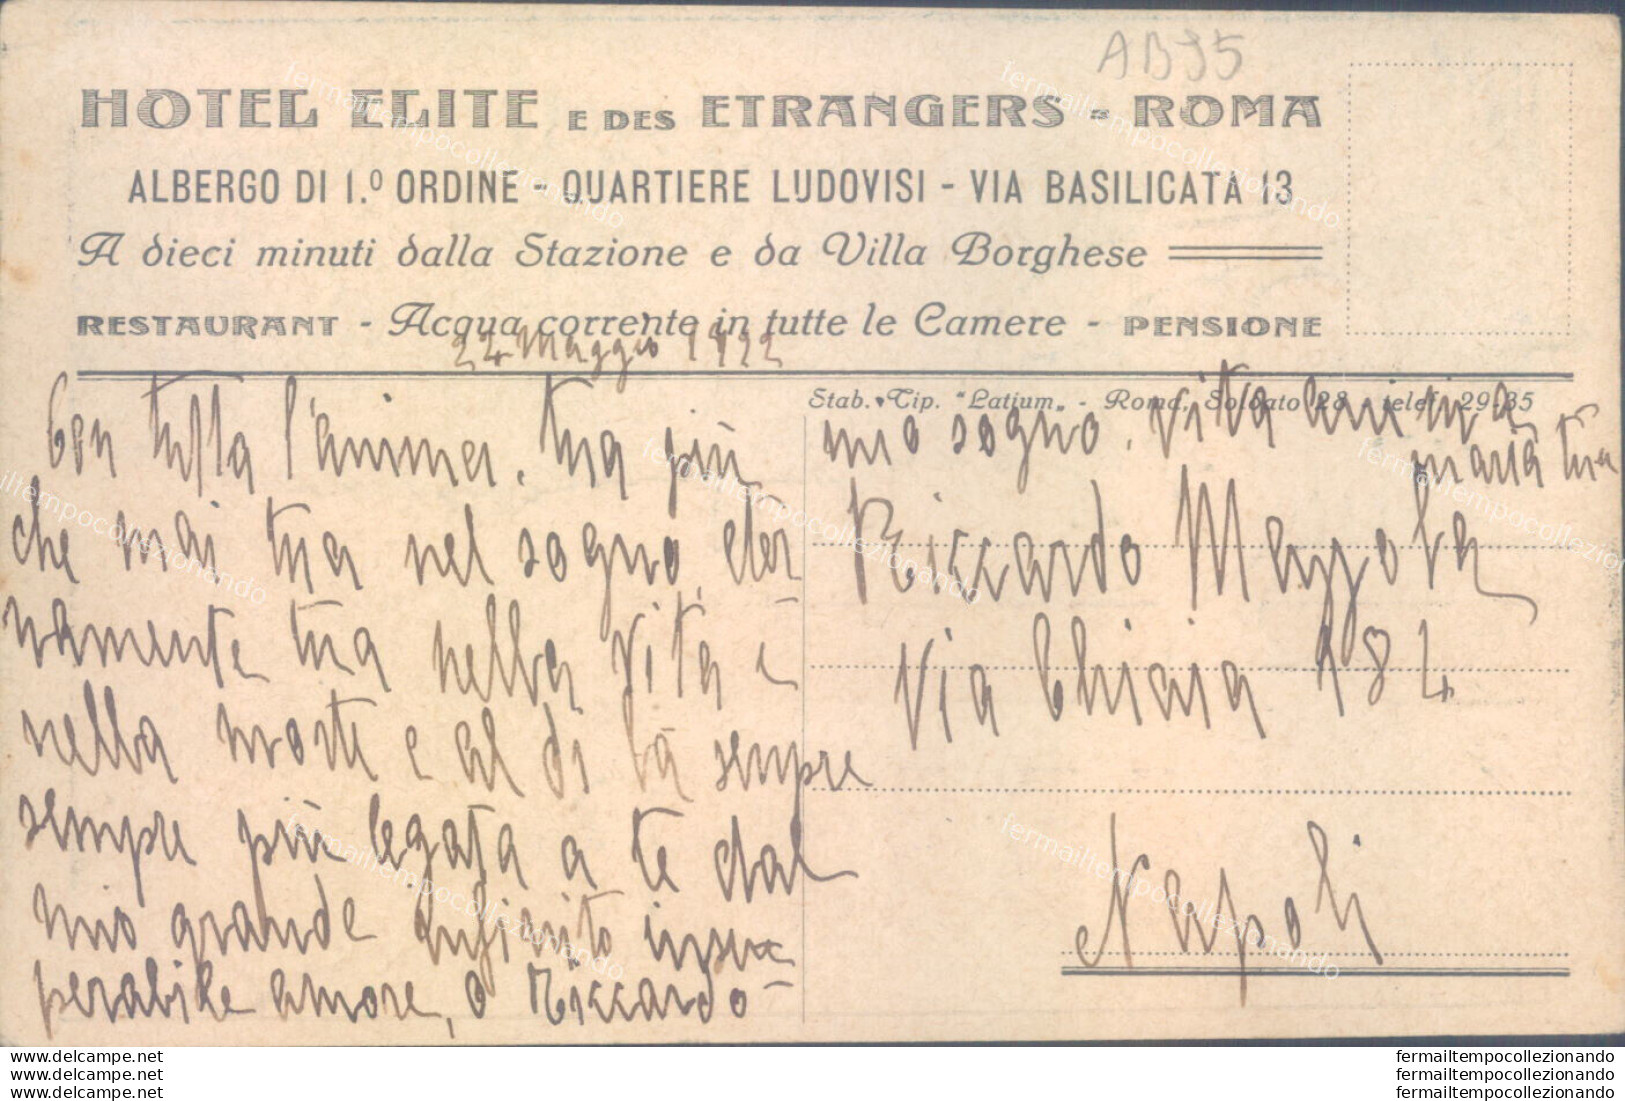 AB95
HOTEL ELITE E DES ETRANGERS - ROMA
ALBERGO DI 1.º ORDINE - QUARTIERE LUDOVISI - VIA BASILICATA 13
A dieci minuti dalla Stazione e da Villa Borghese
RESTAURANT - Acqua corrente in tutte le Camere - PENSIONE
24 Maggio 1922
Stab. Tip. "Latium" - Roma, Soldato 28 - telef. 29-35
Con tutta l'anima. tua più
che mai tua nel sogno, eter
namente tua nella vita e
nella morte e al di là sempre
sempre più legata a te dal
mio grande infinito insu
perabile amore, o Riccardo
mio sogno. vita anima
maria tua
Riccardo Mazzola
Via Chiaia 184
Napoli
www.delcampe.net
www.delcampe.net
www.delcampe.net
fermailtempocollezionando
fermailtempocollezionando
fermailtempocollezionando